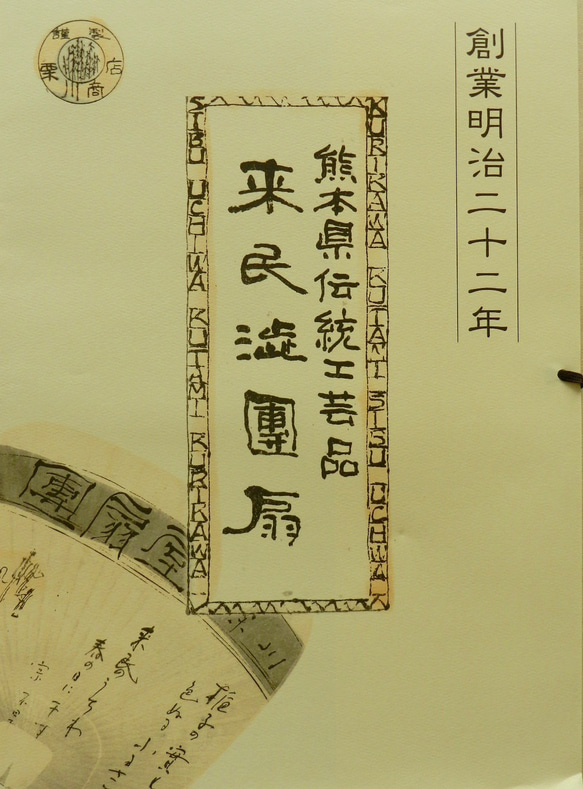 創業明治二十二年
謹製
栗川商店
熊本県伝統工芸品
来民渋團扇
KURIKAWA KUTAMI SIBU UCHIWA
SIBU UCHIWA KUTAMI KURIKAWA
團扇
来民うちわ
春の日に